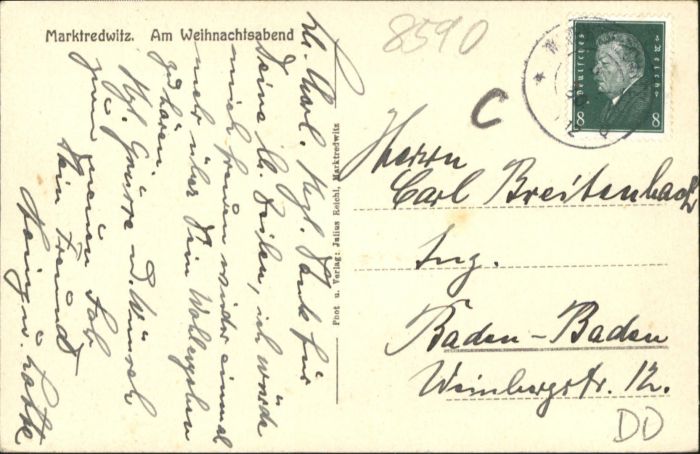 Marktredwitz. Am Weihnachtsabend
8590
C
Deutsches Reich
8 8
Lb. Carl. Hzl. Dank für
Deine lb. Zeilen, ich würde
mich freuen wieder einmal
mehr über Dein Wohlergehen
zu hören.
Hzl. Grüsse u. Wünsche
zum neuen Jahr
Dein Freund
Heinz u. Lotte
Phot u. Verlag: Julius Reichl, Marktredwitz
Herrn
Carl Breitenbach
Ing.
Baden-Baden
Weinbergstr. 12.
DD